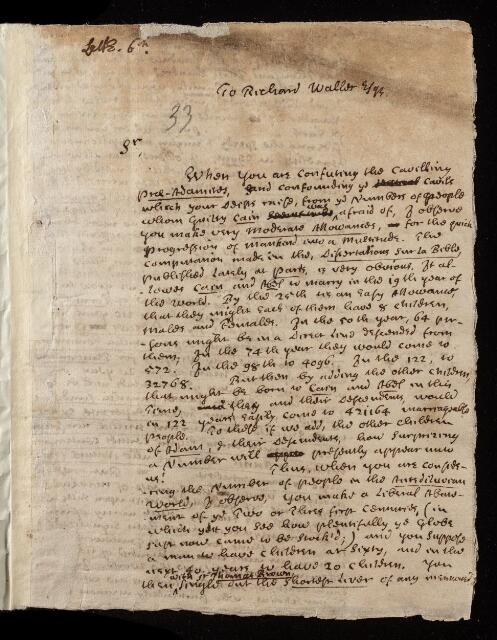 Lett. 6th.
To Richard Waller Esqr.
33
Sr.
When you are confuting the Cavilling
Præ-Adamites, and confounding ye Cavils
which your Deists raise, from ye Numbers of People
whom Guilty Cain was afraid of, I observe
you make very Moderate Allowances, for the quick
Progression of mankind into a Multitude. The
Computation made in the Dissertations Sur la Bible
published lately at Paris, is very obvious. It al-
lowes Cain and Abel to marry in the 19th year of
the World. By the 25th tis an Easy Allowance
that they might Each of them have 8 children,
males and Females. In the 50th year, 64 per-
sons might be in a Direct Line descended from
them, In the 74th year they would come to
572. In the 98th to 4096. In the 122, to
32768. But then by adding the other Children
that might be born to Cain and Abel in this
Time, and their Descendents would
in 122 years Easily come to 421164 marriageable
People. To these if we add, the other Children
of Adam, & their Descendents, how Surprizing
a Number will presently appear unto
us!
Thus, when you are consider-
ing the Number of People in the Antediluvian
World, I observe, you make a Liberal Abate-
ment of ye Two or Three first Centuries, (in
which yett you see how plentifully ye Globe
can now come to be Stock'd;) and you Suppose
a man to have Children at Sixty, and in the
next 40 years to have 20 children. You
then, with Sr Thomas Brown,
Single out the Shortest Liver of any mentioned